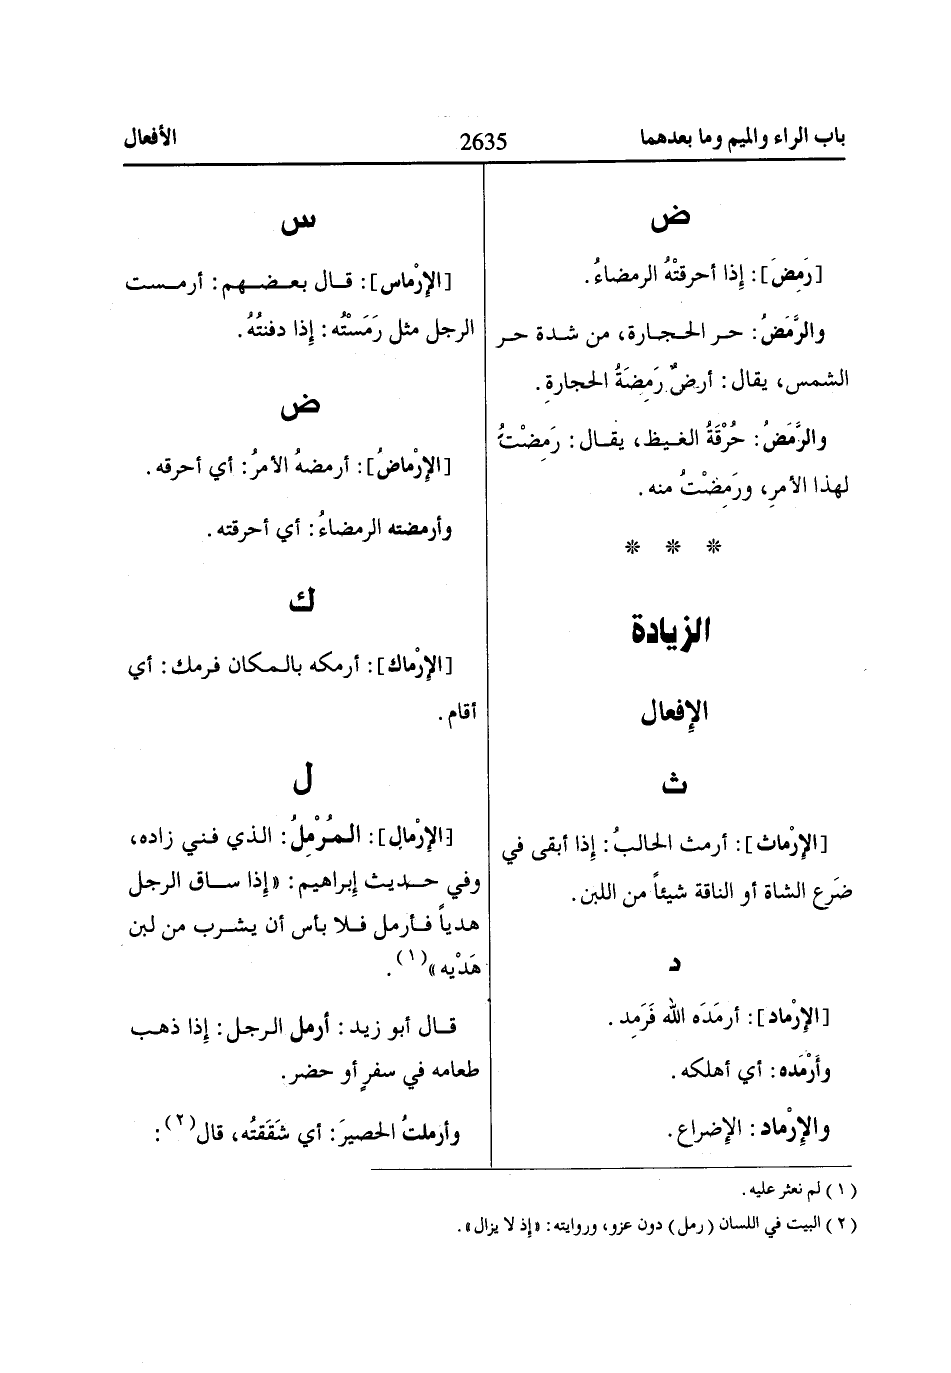 باب الراء والميم وما بعدهما
2635
الأفعال
ض
[رَمِضَ]: إذا أحرقتْهُ الرمضاءُ.
والرَّمَضُ: حر الحجارة، من شدة حر
الشمس، يقال: أرضٌ رَمِضَةُ الحجارةِ.
والرَّمَضُ: حُرْقَةُ الغيظ، يقال: رَمِضْتُ
لهذا الأمرِ، ورَمِضْتُ منه.
* * *
الزيادة
الإفعال
ث
[الإرْماث]: أرمث الحالبُ: إذا أبقى في
ضَرع الشاة أو الناقة شيئاً من اللبن.
د
[الإرْماد]: أرمَدَه الله فَرَمِد.
وأَرْمَده: أي أهلكه.
والإرْماد: الإضراع.
س
[الإرْماس]: قال بعضهم: أرمست
الرجل مثل رَمَسْتُه: إذا دفنتُهُ.
ض
[الإرْماضُ]: أرمضهُ الأمرُ: أي أحرقه.
وأرمضته الرمضاءُ: أي أحرقته.
ك
[الإرْماك]: أرمكه بالمكان فرمك: أي
أقام.
ل
[الإرْمال]: المُرْمِلُ: الذي فني زاده،
وفي حديث إبراهيم: «إذا ساق الرجل
هدياً فأرمل فلا بأس أن يشرب من لبن
هَدْيه»(١).
قال أبو زيد: أرمل الرجل: إذا ذهب
طعامه في سفرٍ أو حضر.
وأرملتُ الحصيرَ: أي شَقَقتُه، قال(٢):
(١) لم نعثر عليه.
(٢) البيت في اللسان (رمل) دون عزو، وروايته: «إذ لا يزال».